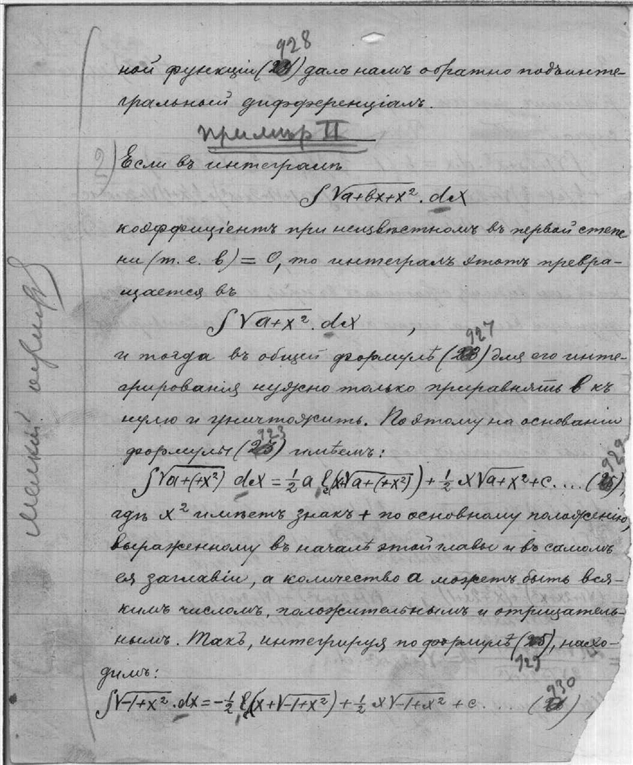 928
ной функціи (23) дало намъ обратно подъинте-
гральный дифференціалъ.
примѣръ II
2) Если въ интегралѣ
∫√a+bx+x². dx
коэффиціентъ при неизвѣстномъ въ первой степе
ни (т. е. b) = 0, то интегралъ этотъ превра-
щается въ
∫√a+x². dx ,
927
и тогда въ общей формулѣ (23) для его инте-
грированія нужно только приравнять b къ
нулю и уничтожить. Поэтому на основаніи
формулы (23) имѣемъ:
929
∫√a+(+x²) dx = ½ a l(x+√a+(+x²)) + ½ x√a+x² + c.... (25),
гдѣ x² имѣетъ знакъ + по основному положенію,
выраженному въ началѣ этой главы и въ самомъ
ея заглавіи, а количество a можетъ быть вся-
кимъ числомъ, положительнымъ и отрицатель-
нымъ. Такъ, интегрируя по формулѣ (25), нахо-
929
димъ:
930
∫√-1+x². dx = -½ l(x+√-1+x²) + ½ x√-1+x² + c.... ( ),
Мелкій